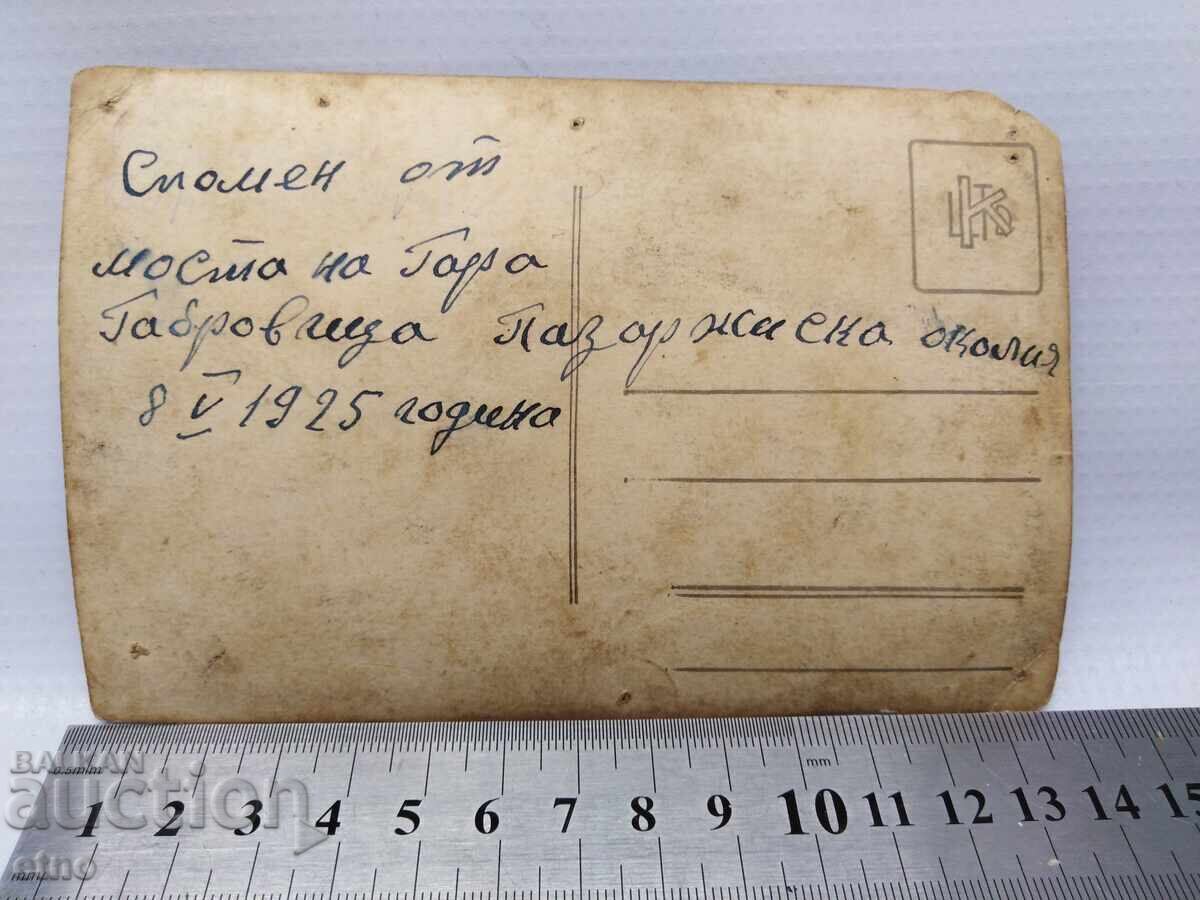 Спомен от
моста на Гара
Габровица Пазаржиска околия
8 V 1925 година
BALKAN
auction
etno
0.5mm
mm
1 2 3 4 5 6 7 8 9 10 11 12 13 14 15
mm